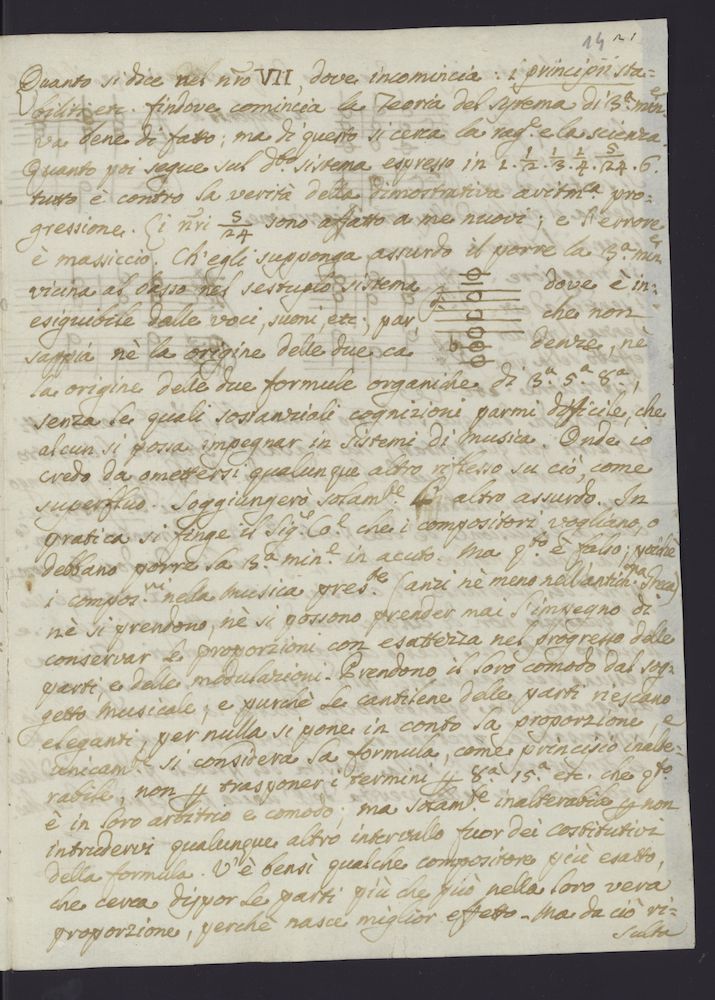 14
Quanto si dice nel nro VII, dove incomincia: i principii sta=
biliti etc. findove comincia la Teoria del systema di 3.a min.e
va bene di fatto; ma di questo si cerca la rag.e e la scienza.
Quanto poi segue sul d.o sistema espresso in 1. 1/2. 1/3. 1/4. 5/24. 6.
tutto è contro la verità della dimostrativa aritm.ca pro-
gressione. Li nri 5/24 sono affatto a me nuovi; e l'errore
è massiccio. Ch'egli supponga assurdo il porre la 3.a min.e
vicina al basso nel sestuplo sistema dove è in-
esiguibile dalle voci, suoni, etc., par, che non
sappia nè la origine delle due ca denze, nè
la origine delle due formule organiche di 3.a 5.a 8.a,
senza le quali sostanziali cognizioni parmi difficile, che
alcun si possa impegnar in sistemi di Musica. Onde io
credo da omettersi qualunque altro riflesso su ciò, come
superfluo. Soggiungerò solam.te altro assurdo. In
pratica si finge il Sig.r Co.e che i compositori vogliano, o
debbano porre la 3.a min.e in acuto. Ma q.to è falso; poichè
i compos.ri nella Musica pres.te (anzi nè meno nell'antich.ma Greca)
nè si prendono, nè si possono prender mai l'impegno di
conservar le proporzioni con esattezza nel progresso delle
parti e delle modulazioni. Prendono il loro comodo dal sog-
getto musicale, e purchè le cantilene delle parti riescano
eleganti, per nulla si pone in conto la proporzione, e
unicam.te si considera la formula, come principio inalte-
rabile, non p trasponer i termini p 8.a 15.a etc. che q.to
è in loro arbitrio e comodo; ma solam.te inalterabile p non
intrudervi qualunque altro intervallo fuor dei costitutivi
della formula. V'è bensì qualche compositore più esatto,
che cerca dispor le parti più che può nella loro vera
proporzione, perchè nasce miglior effetto. Ma da ciò ri=
sulta